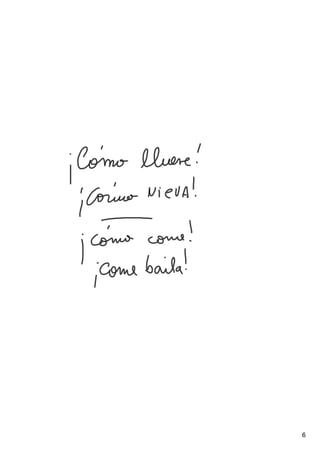 ¡Cómo llueve!
¡Cómo NIEVA!
¡Cómo come!
¡Come baila!
6